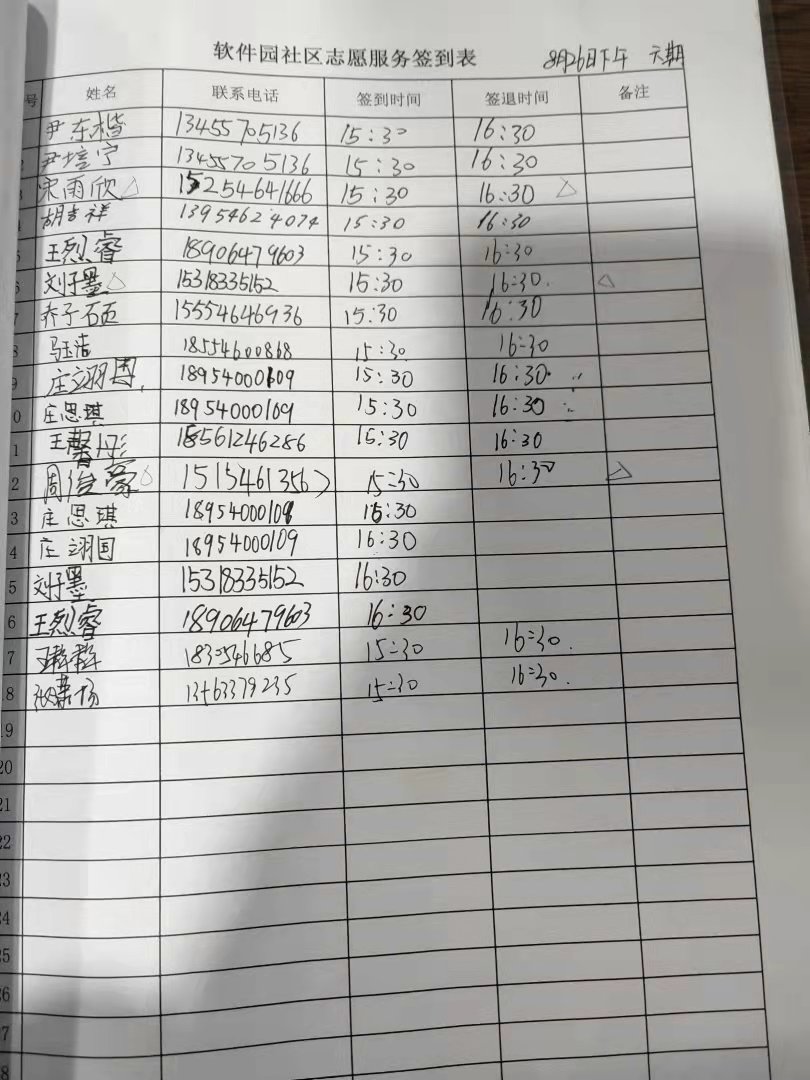 软件园社区志愿服务签到表 8月26日下午
号 姓名 联系电话 签到时间 签退时间 备注
尹东楷 13455705136 15:30 16:30
2 尹培宁 13455705136 15:30 16:30
3 宋雨欣△ 15254641666 15:30 16:30 △
4 胡吉祥 13954624074 15:30 16:30
5 王烈睿 18906479603 15:30 16:30
6 刘子墨△ 15318335152 15:30 16:30. △
7 乔子硕 15554646936 15:30 16:30
8 马钰洁 18554600868 15:30 16:30
9 庄翊国 18954000109 15:30 16:30
0 庄思琪 18954000109 15:30 16:30
1 王馨彤 18561246286 15:30 16:30
2 周俊豪△ 15:30 16:30 △
3 庄思琪 18954000109 15:30
4 庄翊国 18954000109 16:30
5 刘子墨 15318335152 16:30
6 王烈睿 18906479603 16:30
7 15:30 16:30.
8 15:30 16:30.
19
20
21
22
23
24
25
26
27
28